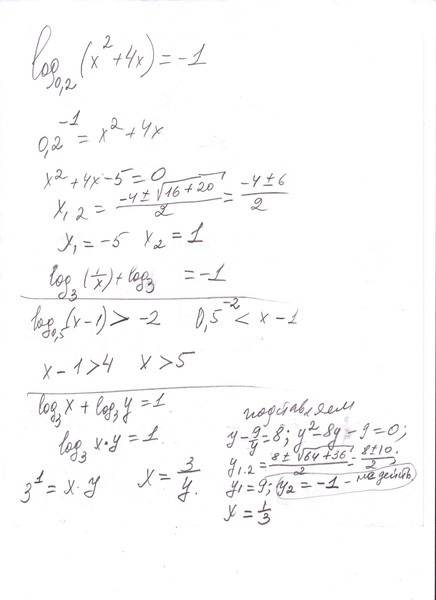 log₀,₂(x² + 4x) = -1
0,2⁻¹ = x² + 4x
x² + 4x - 5 = 0
x₁,₂ = (-4 ± √(16 + 20))/2 = (-4 ± 6)/2
x₁ = -5 x₂ = 1
log₃(1/x) + log₃ = -1
log₀,₅(x - 1) > -2 0,5⁻² < x - 1
x - 1 > 4 x > 5
log₃x + log₃y = 1.
log₃ x·y = 1.
3¹ = x·y x = 3/y.
подставляем
y - 9/y = 8; y² - 8y - 9 = 0;
y₁.₂ = (8 ± √(64 + 36))/2 = (8 ± 10)/2.
y₁ = 9; y₂ = -1 -
x = 1/3